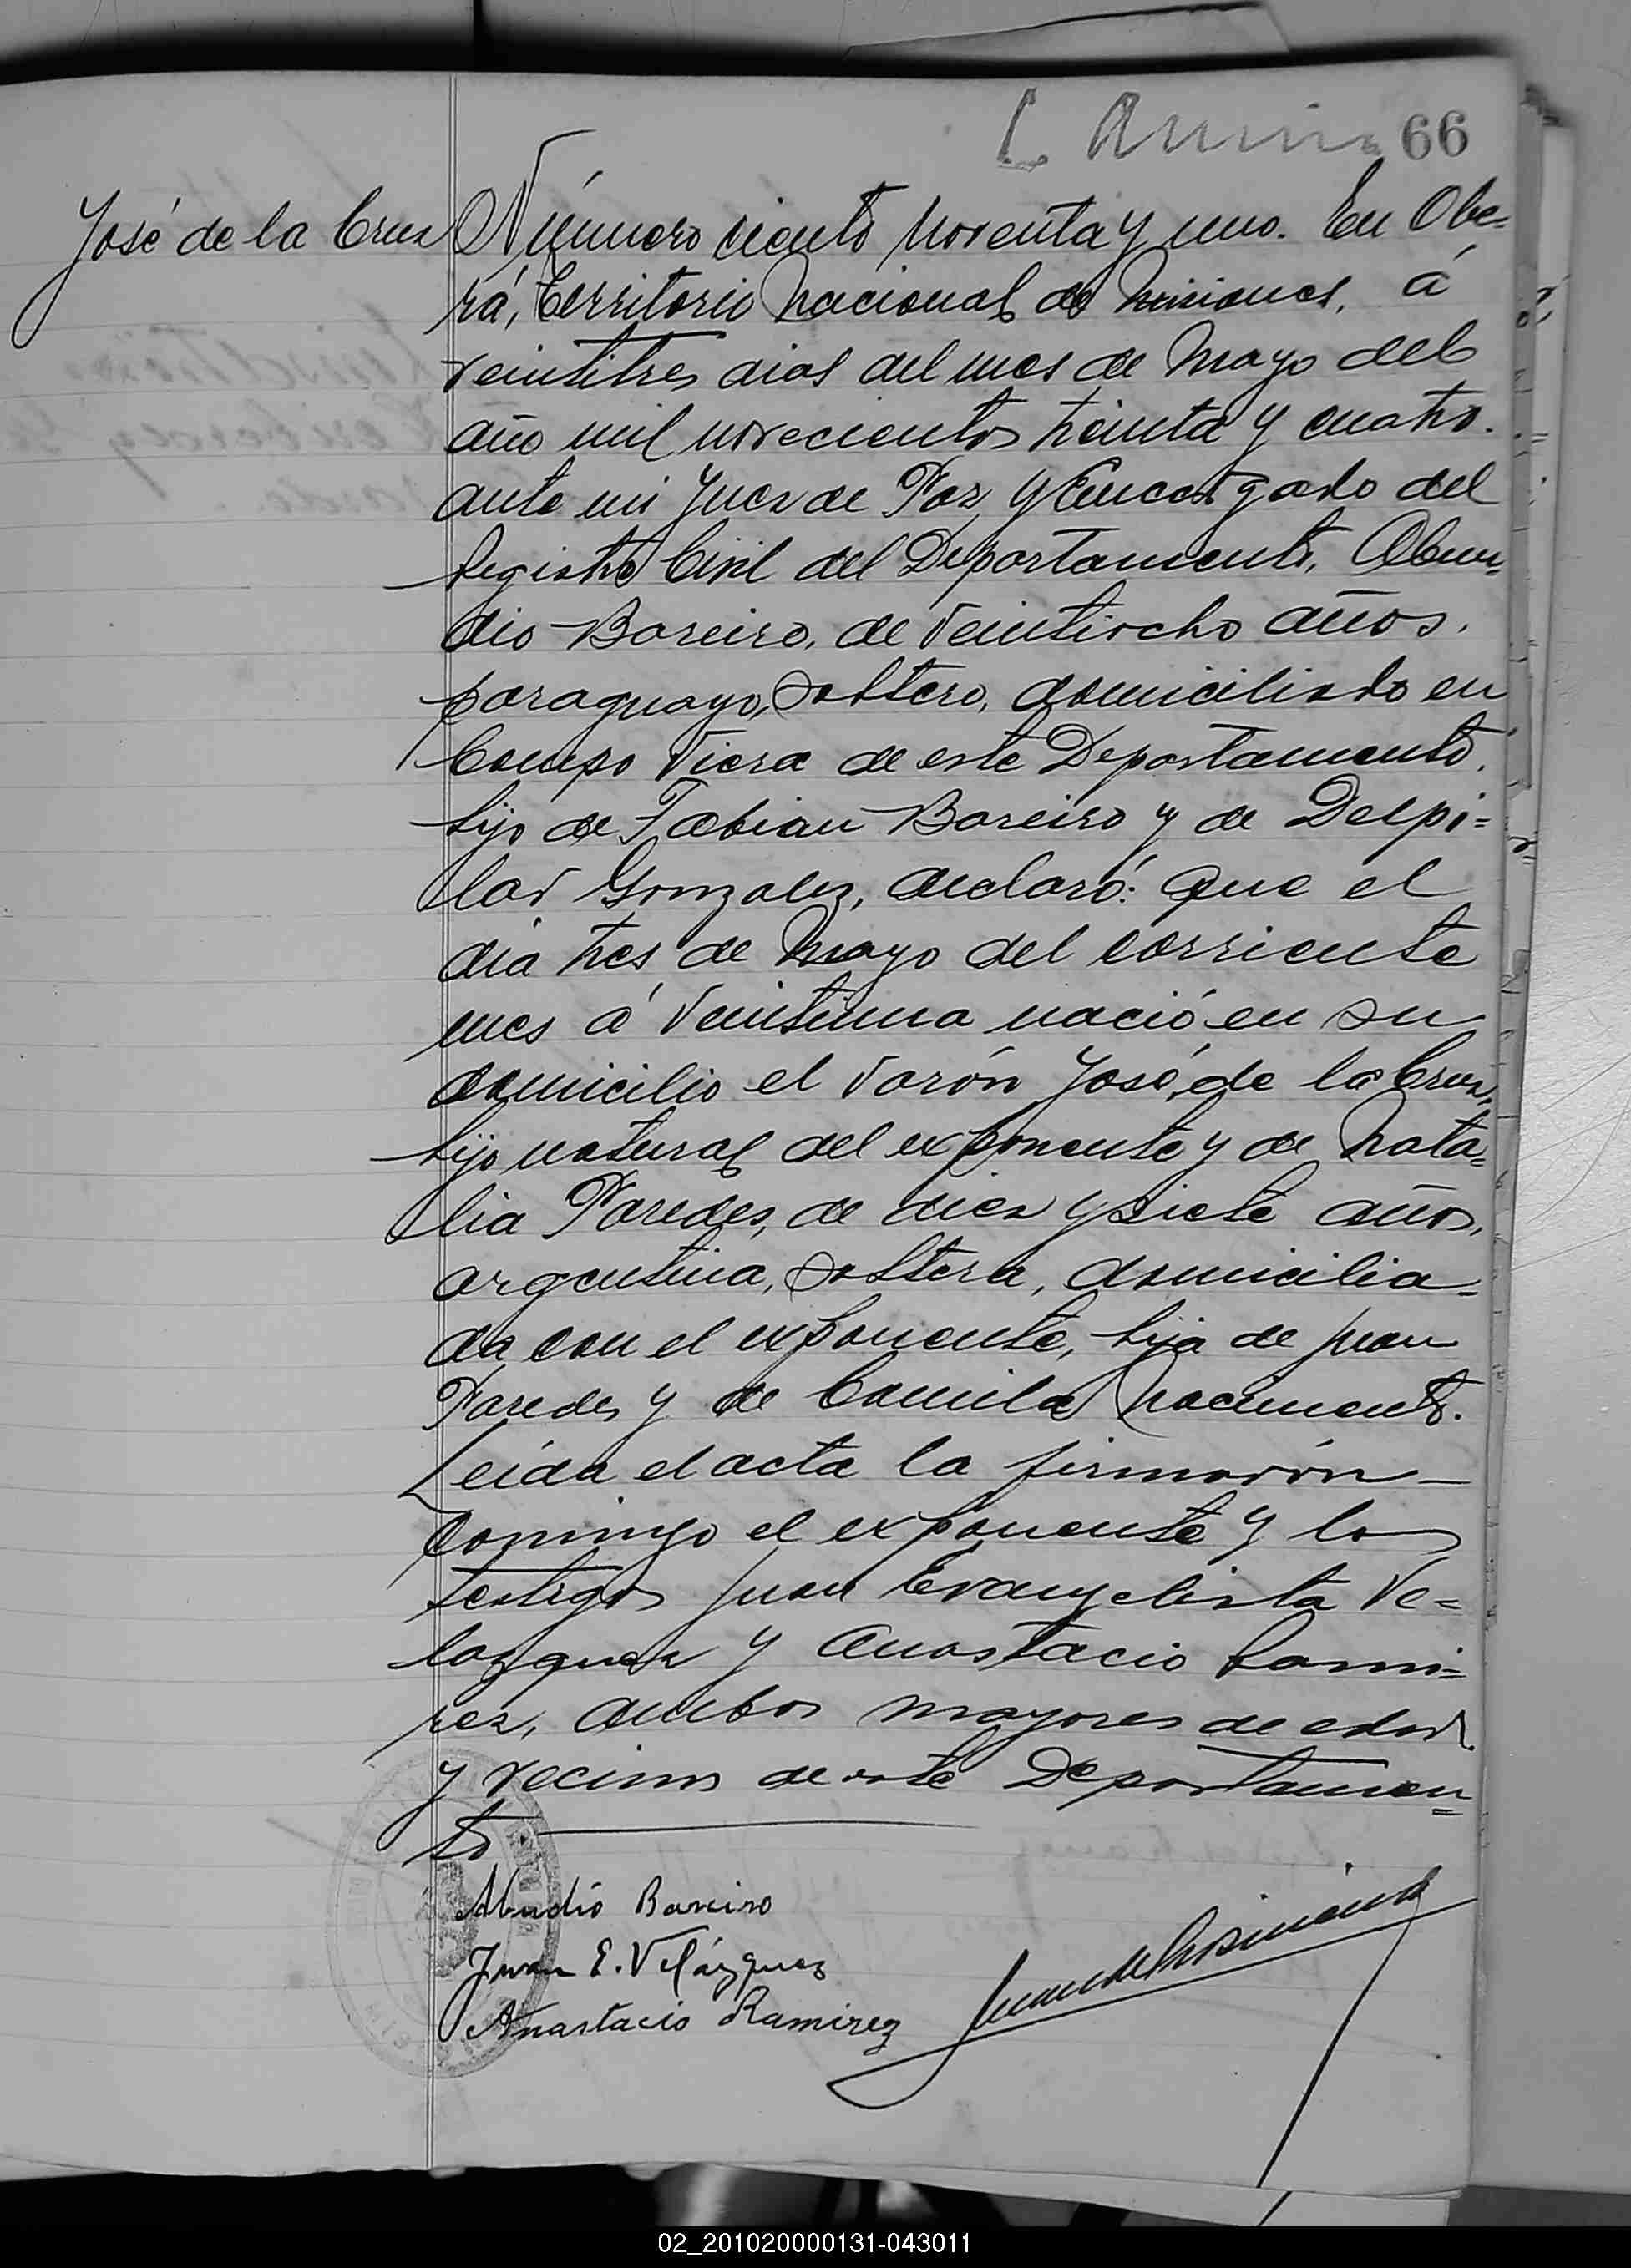 66
José de la Cruz
Número ciento noventa y uno. En Obe=
rá, Territorio Nacional de Misiones, á
veintitres dias del mes de Mayo del
año mil novecientos treinta y cuatro.
ante mi Juez de Paz y Encargado del
Registro Civil del Departamento, Abun=
dio Bareiro, de veintiocho años,
paraguayo, soltero, domiciliado en
Campo Viera de este Departamento,
hijo de Fabian Bareiro y de Delpi=
lar Gonzalez, declaró: Que el
dia tres de Mayo del corriente
mes á veintiuna nació en su
domicilio el varón José de la Cruz,
hijo natural del exponente y de Nata=
lia Paredes, de diez y siete años,
argentina, soltera, domicilia=
da con el exponente, hija de Juan
Paredes y de Camila Nacimento.
Leida el acta la firmarón
conmigo el exponente y los
testigos Juan Evangelista Ve=
lazquez y Anastacio Rami=
rez, ambos mayores de edad
y vecinos de este Departamen=
to.
Abudio Bareiro
Juan E. Velázquez
Anastacio Ramirez
02_201020000131-043011